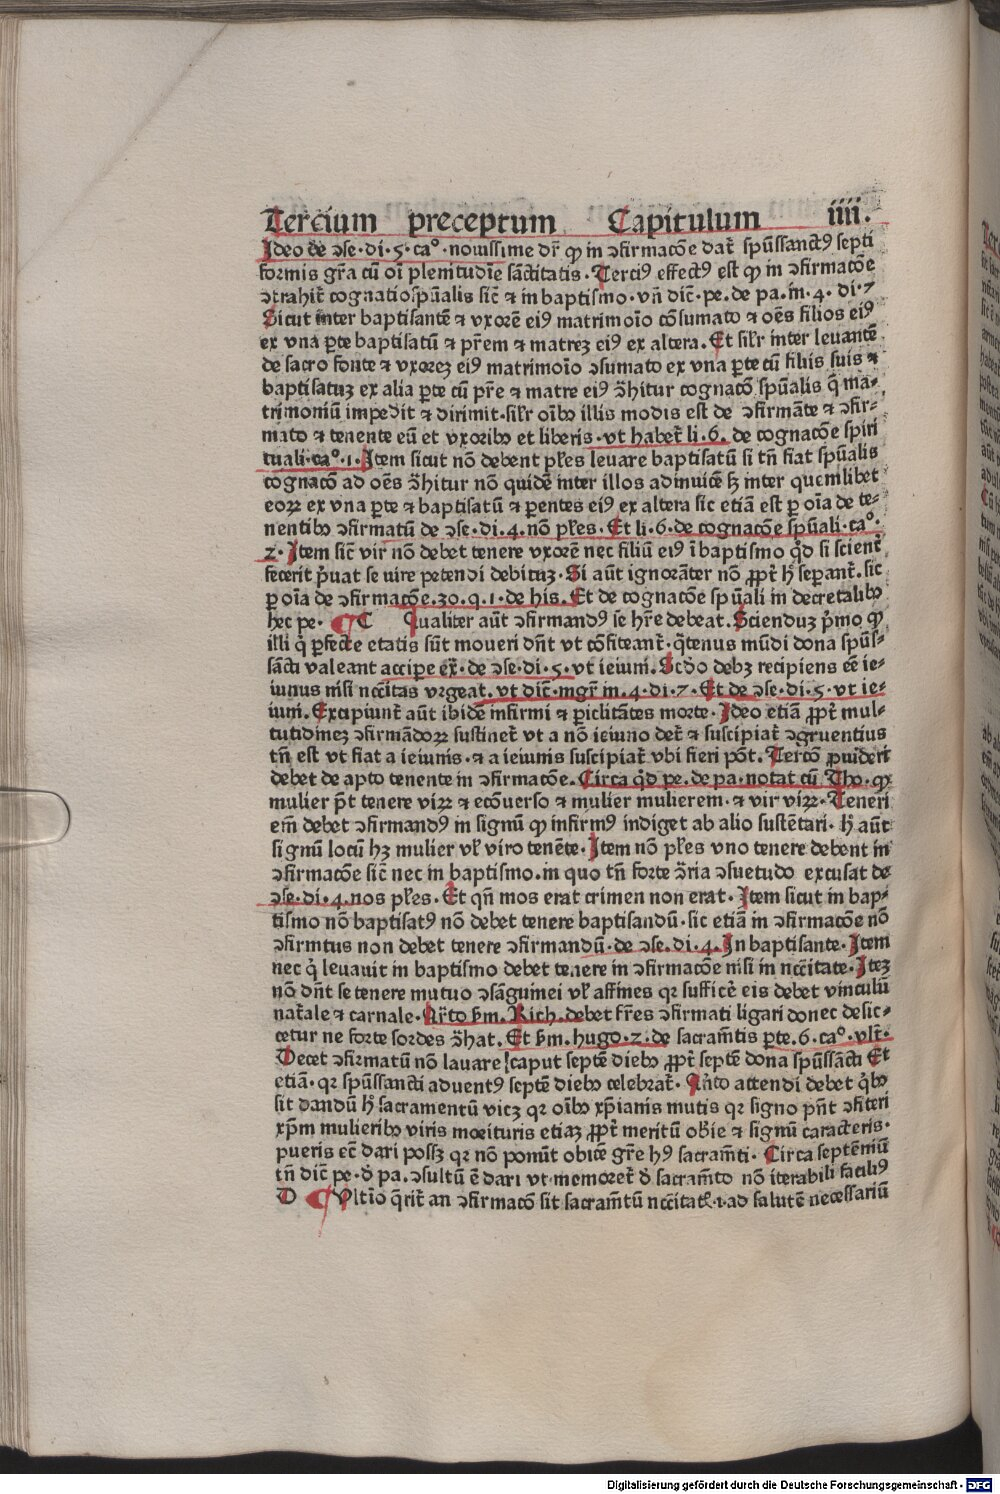 Tercium preceptum Capitulum iiii.
Ideo de ꝯse·di·5·ca°·nouissime dr̄ ꝙ in ꝯfirmacōe dat̄ spūssanctꝰ septi
formis gr̄a cū oī plenitudīe sāctitatis·Terciꝰ effectꝰ est ꝙ in ꝯfirmacōe
ꝯtrahit̄ cognatio spūalis sic̄ ⁊ in baptismo·vn̄ dic̄·pe·de pa·in·4·di·7
Sicut inter baptisantē ⁊ vxorē eiꝰ matrimoīo cōsumato ⁊ oēs filios eiꝰ
ex vna ꝑte baptisatū ⁊ pr̄em ⁊ matreꝫ eiꝰ ex altera·Et sil̄r inter leuantē
de sacro fonte ⁊ vxoreꝫ eiꝰ matrimoīo ꝯsumato ex vna ꝑte cū filiis suis ⁊
baptisatuꝫ ex alia ꝑte cū pr̄e ⁊ matre eiꝰ ꝯ̄hitur cognacō spūalis q̄ ma-
trimoniū impedit ⁊ dirimit·sil̄r oībꝰ illis modis est de ꝯfirmāte ⁊ ꝯfir-
mato ⁊ tenente eū et vxoribꝰ et liberis·vt habet̄ li·6·de cognacōe spiri
tuali·ca°·1·Item sicut nō debent pl̄es leuare baptisatū si tn̄ fiat spūalis
cognacō ad oēs ꝯ̄hitur nō quidē inter illos adinuicē sꝫ inter quemlibet
eoꝝ ex vna ꝑte ⁊ baptisatū ⁊ ꝑentes eiꝰ ex altera sic etiā est ꝑ oīa de te-
nentibꝰ ꝯfirmatū de ꝯse·di·4·nō pl̄es·Et li·6·de cognacōe spūali·ca°·
2·Item sic̄ vir nō debet tenere vxorē nec filiū eiꝰ ī baptismo qd̄ si scient̄
fecerit p̄uat se uire petendi debituꝫ·Si aūt ignorāter nō ꝓpt̄ h̄ seꝑant̄·sic
ꝑ oīa de ꝯfirmacōe·30·q·1·de his·Et de cognacōe spūali in decretalibꝰ
hec pe· ¶ C Qualiter aūt ꝯfirmandꝰ se hr̄e debeat·Sciendum p̄mo ꝙ
illi q̄ ꝑfecte etatis sūt moueri dn̄t vt cōfiteant̄·q̄tenus mūdi dona spūs-
sācti valeant acciꝑe ex̄·de ꝯse·di·5·vt ieiuni·Scd̄o debꝫ recipiens eē ie-
iunus nisi ncc̄itas vrgeat·vt dic̄·mgr̄ in·4·di·7·Et de ꝯse·di·5·vt ie-
iuni·Excipiunt̄ aūt ibidē infirmi ⁊ ꝑiclitātes morte·Ideo etiā ꝓpt̄ mul-
titudineꝫ ꝯfirmādoꝝ sustinet̄ vt a nō ieiuno det̄ ⁊ suscipiat̄ ꝯgruentius
tn̄ est vt fiat a ieiunis·⁊ a ieiunis suscipiat̄ vbi fieri pōt·Tercō ꝓuideri
debet de apto tenente in ꝯfirmacōe·Circa qd̄ pe·de pa·notat cū Tho·ꝙ
mulier p̄t tenere viꝝ ⁊ ecōuerso ⁊ mulier mulierem·⁊ vir viꝝ·Teneri
em̄ debet ꝯfirmandꝰ in signū ꝙ infirmꝰ indiget ab alio sustētari·h̄ aūt
signū locū hꝫ mulier vl̄ viro tenēte·Item nō pl̄es vno tenere debent in
ꝯfirmacōe sic̄ nec in baptismo·in quo tn̄ forte ꝯ̄ria ꝯsuetudo excusat de
ꝯse·di·4·nos pl̄es·Et qn̄ mos erat crimen non erat·Item sicut in bap-
tismo nō baptisatꝰ nō debet tenere baptisandū·sic etiā in ꝯfirmacōe nō
ꝯfirmtus non debet tenere ꝯfirmandū·de ꝯse·di·4·In baptisante·Item
nec q̄ leuauit in baptismo debet tenere in ꝯfirmacōe nisi in ncc̄itate·Iteꝫ
nō dn̄t se tenere mutuo ꝯsāguinei vl̄ affines qr sufficē eis debet vinculū
nat̄ale ⁊ carnale·Qr̄to ẜm·Rich·debet fr̄es ꝯfirmati ligari donec desic-
cetur ne forte sordes ꝯ̄hat·Et ẜm·hugo·2·de sacram̄tis ꝑte·6·ca°·vlt̄·
Decet ꝯfirmatū nō lauare caput septē diebꝰ ꝓpt̄ septē dona spūssācti Et
etiā·qr spūssancti aduentꝰ septē diebꝰ celebrat̄·Qn̄to attendi debet q̄bꝰ
sit dandū h̄ sacramentū vicꝫ qr oībꝰ xp̄ianis mutis qr signo pn̄t ꝯfiteri
xp̄m mulieribꝰ viris morituris etiaꝫ ꝓpt̄ meritū ob̄ie ⁊ signū caracteris·
pueris ec̄ dari possꝫ qr nō ponūt obicē gr̄e hꝰ sacram̄ti·Circa septēmiū
tn̄ dic̄ pe·d̄ pa·ꝯsultū ē dari vt·memoret̄ d̄ sacram̄to nō iterabili faciliꝰ
D ¶ Vltīo q̄rit̄ an ꝯfirmacō sit sacram̄tū ncc̄itat̄·i·ad salutē necessariū
Digitalisierung gefördert durch die Deutsche Forschungsgemeinschaft - DFG